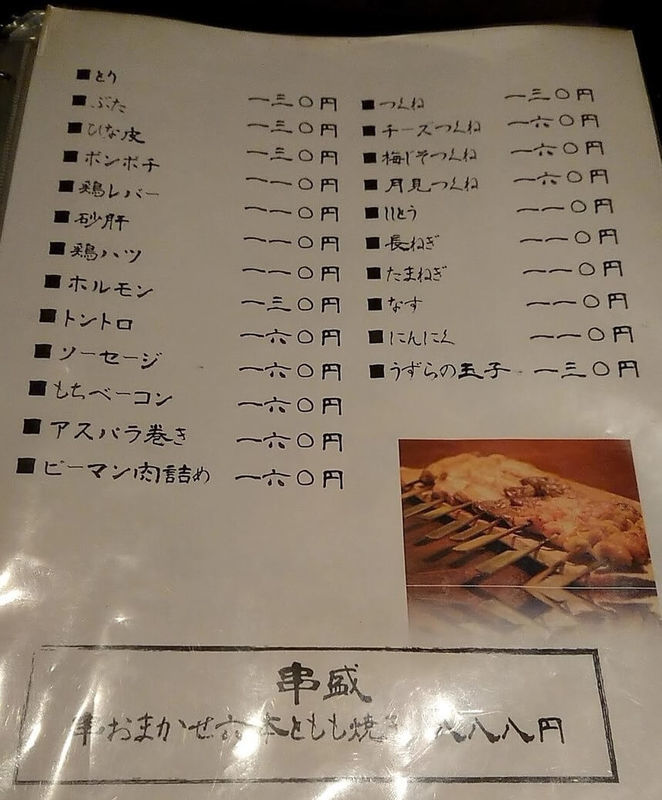 ■とり 一三〇円
■ぶた 一三〇円
■ひな皮 一三〇円
■ボンボチ 一一〇円
■鶏レバー 一一〇円
■砂肝 一一〇円
■鶏ハツ 一一〇円
■ホルモン 一三〇円
■トントロ 一六〇円
■ソーセージ 一六〇円
■もちベーコン 一六〇円
■アスパラ巻き 一六〇円
■ピーマン肉詰め 一六〇円
■つくね 一三〇円
■チーズつくね 一六〇円
■梅じそつくね 一六〇円
■月見つくね 一六〇円
■ししとう 一一〇円
■長ねぎ 一一〇円
■たまねぎ 一一〇円
■なす 一一〇円
■にんにく 一一〇円
■うずらの玉子 一三〇円
串盛
串おまかせ六本ともも焼き 八八八円